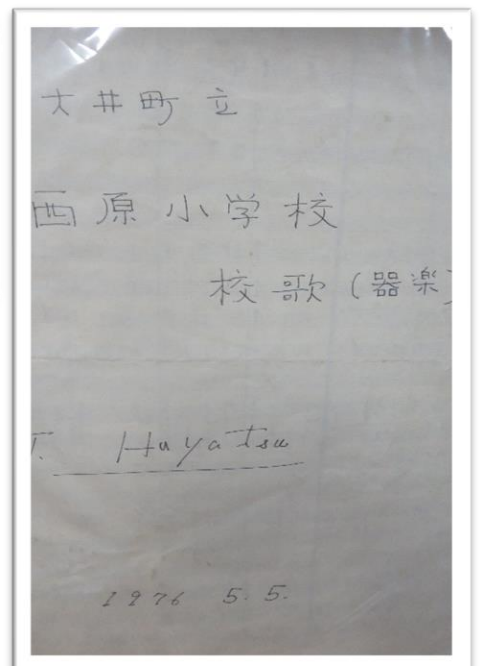 大井町立
西原小学校
校歌(器楽)
T. Hayatsu
1976 5.5.